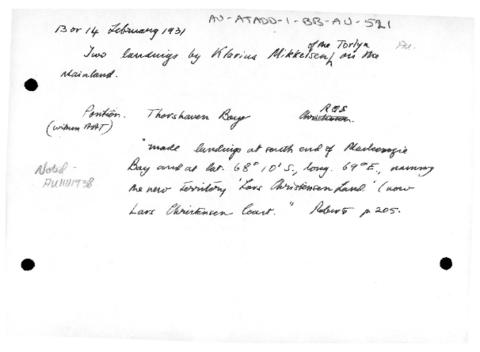 AU-ATADD-1-BB-AU-521
13 or 14 February 1931
Two landings by Klarius Mikkelsen of the Torlyn on the
Mainland.
Position: Thorshaven Bay
Christensen
(within AAT)
"made landings at south end of Mackenzie
Bay and at lat. 68° 10'S., long. 69°E., naming
the new Territory 'Lars Christensen Land' (now
Lars Christensen Coast." Roberts p 205.
Noted -